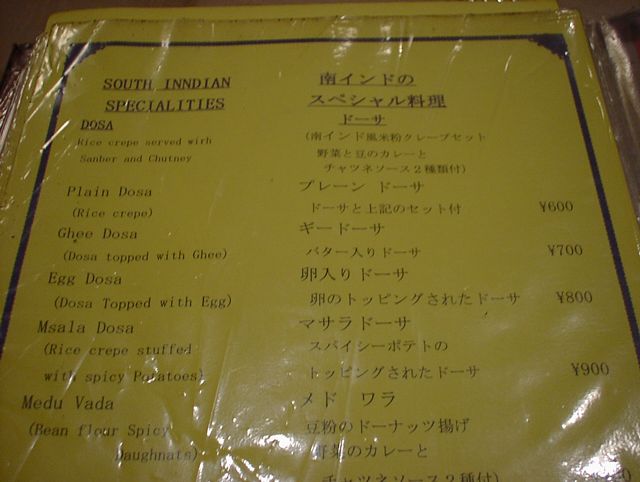 SOUTH INNDIAN 南インドの
SPECIALITIES スペシャル料理
DOSA ドーサ
Rice crepe served wirh (南インド風米粉クレープセット
Sanber and Chutney 野菜と豆のカレーと
チャツネソース2種類付)
Plain Dosa プレーン ドーサ
(Rice crepe) ドーサと上記のセット付 ¥600
Ghee Dosa ギードーサ
(Dosa topped with Ghee) バター入りドーサ ¥700
Egg Dosa 卵入りドーサ
(Dosa Topped with Egg) 卵のトッピングされたドーサ ¥800
Msala Dosa マサラドーサ
(Rice crepe stuffed スパイシーポテトの
with spicy Potatoes) トッピングされたドーサ ¥900
Medu Vada メド ワラ
(Bean flour Spicy 豆粉のドーナッツ揚げ
Daughnats) 野菜のカレーと
チャツネソース2種付)